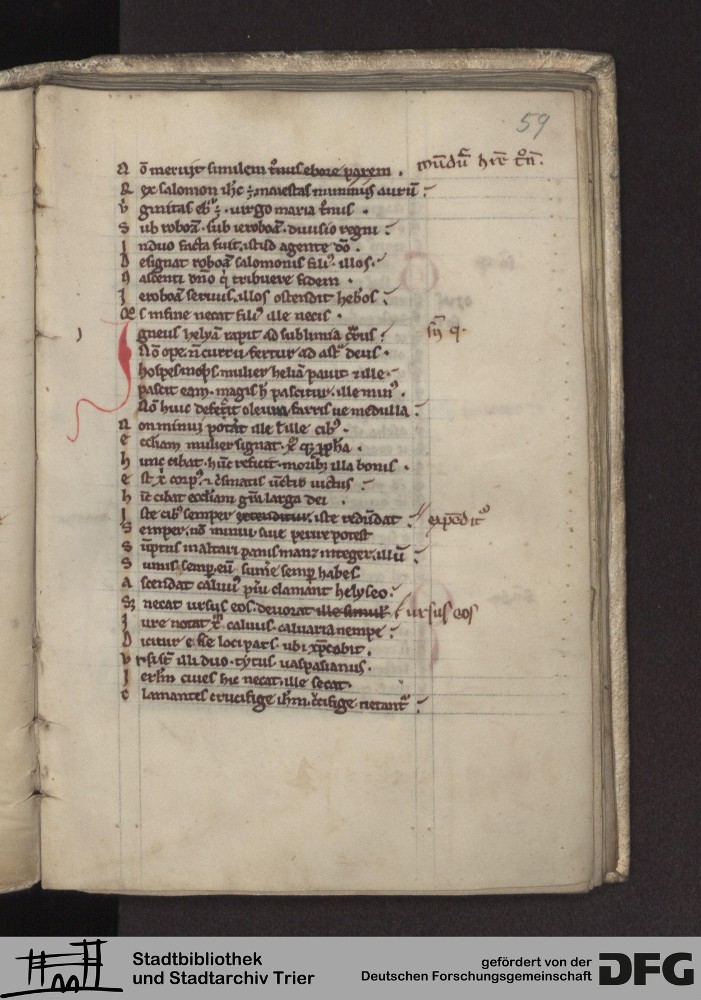 59
N õ meruit similem t͛nus ebore parem . mũdũ hr̃e t͛n.
R ex salomon ih̃c ÷ maiestas numinis aurũ
V̓ ginitas eb᷒ ÷ . virgo maria t͛nus .
S ub roboã . sub ieroboã . diuisio regni
I nduo facta fuit . istud agente dõ .
D esignat roboã salomonis fili᷒ . illos .
N ascenti dño q̇ tribuere fidem .
I eroboã seruus . illos ostendit heb̓os
s in fine necat fili᷒ ille necis .
I gneus helyã rapit ad sublimia
Nõ ope . ñ curru fertur ad ast͛ deus .
hospes inop̃s mulier heliã pauit ⁊ ille .
pascit eam . magis h̃ pascitur . ille min᷒ .
Nõ huic defec̓it oleum farris ue medulla
N on minuit potãt ille l̃ ille cib᷒ .
E ccl̃iam mulier signat .
h unc cibat . hũc reficit . morib; illa bonis .
E st x̃ corp᷒ ⁊ c̓smatis ũctio uictus
h ic cibat eccl̃iam gr̃a larga dei .
I ste cib᷒ semper extenditur . iste redũdat expẽdit᷒
S emper . nõ minui siue perire potest
S ũptus in altari panis manz integer . illũ
S umis semp̱ . eũ sum̓e semp̱ habes
A scendat calue prĩu clamant helyseo .
S; necat ursus eos . deuorat ille simul ursus eos
I ure notat x͛ caluus . caluaria nempe
D icitur e ẽe loci pars . ubi
V rsi st̃ illi duo . tytus uaspasianus .
I erl̃m ciues hic necat . ille secat .
C lamantes crucifige ih̃m . c̓cifige
Stadtbibliothek
und Stadtarchiv Trier
gefördert von der
Deutschen Forschungsgemeinschaft DFG